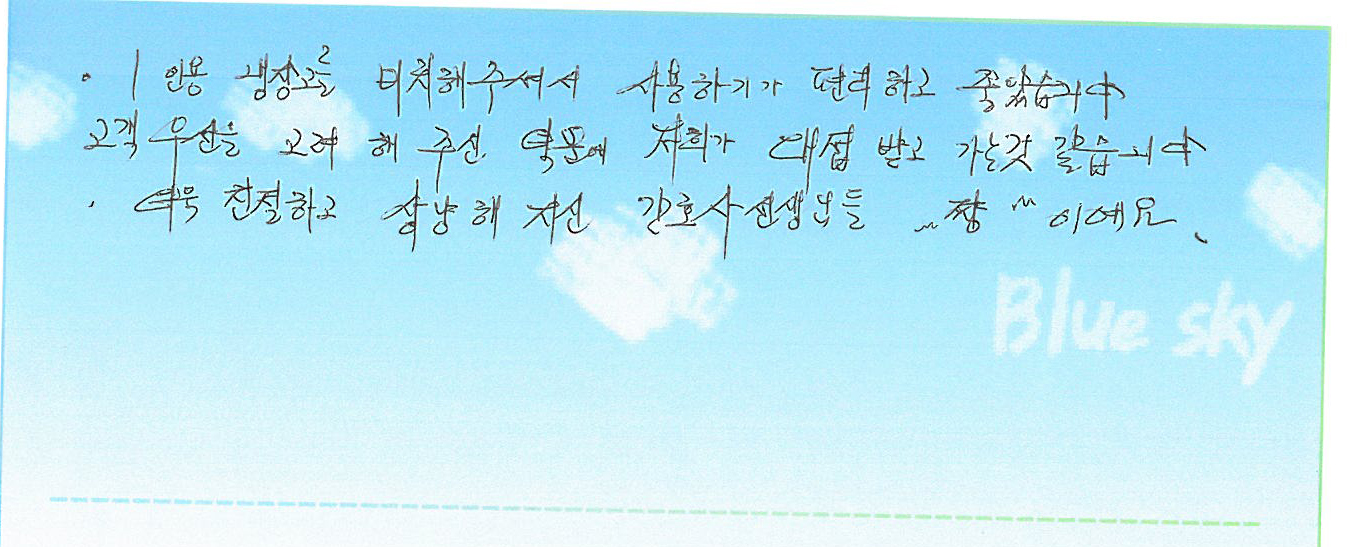 · 1인용 냉장고를 비치해주셔서 사용하기가 편리하고 좋았습니다
고객 우선을 고려해 주신 덕분에 저희가 대접 받고 가는것 같습니다
· 더욱 친절하고 상냥해 지신 간호사선생님들 "짱" 이에요.
Blue sky